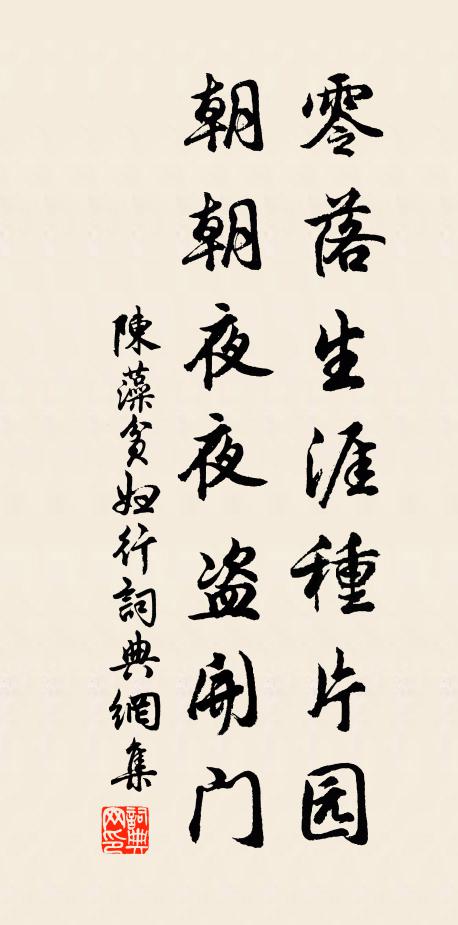 零落生涯種片园
朝朝夜夜盗開门
陳藻贫妇行詞典網集
詞典网印